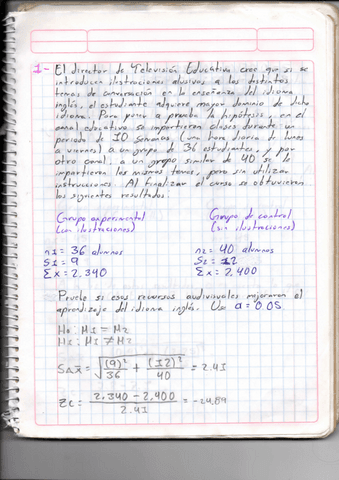 1- El director de Televisión Educativa cree que si se
introducen ilustraciones alusivas a los distintos
temas de conversación en la enseñanza del idioma
inglés, el estudiante adquiere mayor dominio de dicho
idioma. Para poner a prueba la hipótesis, en el
canal educativo se impartieron clases durante un
periodo de 10 semanas (una hora diaria de lunes
a viernes) a un grupo de 36 estudiantes, y por
otro canal, a un grupo similar de 40 se le
impartieron los mismos temas, pero sin utilizar
instrucciones. Al finalizar el curso se obtuvieron
los siguientes resultados:
Grupo experimental Grupo de control
(con ilustraciones) (sin ilustraciones)
n1 = 36 alumnos n2 = 40 alumnos
S1 = 9 S2 = 12
Σx = 2.340 Σx = 2,400
Pruebe si esos recursos audiovisuales mejoraron el
aprendizaje del idioma inglés. Use α = 0.05.
Ho: M1 = M2
H1: M1 ≠ M2
SΔx̄ = √((9)²/36 + (12)²/40) = 2.41
Zc = (2.340 - 2.400)/2.41 = -24.89